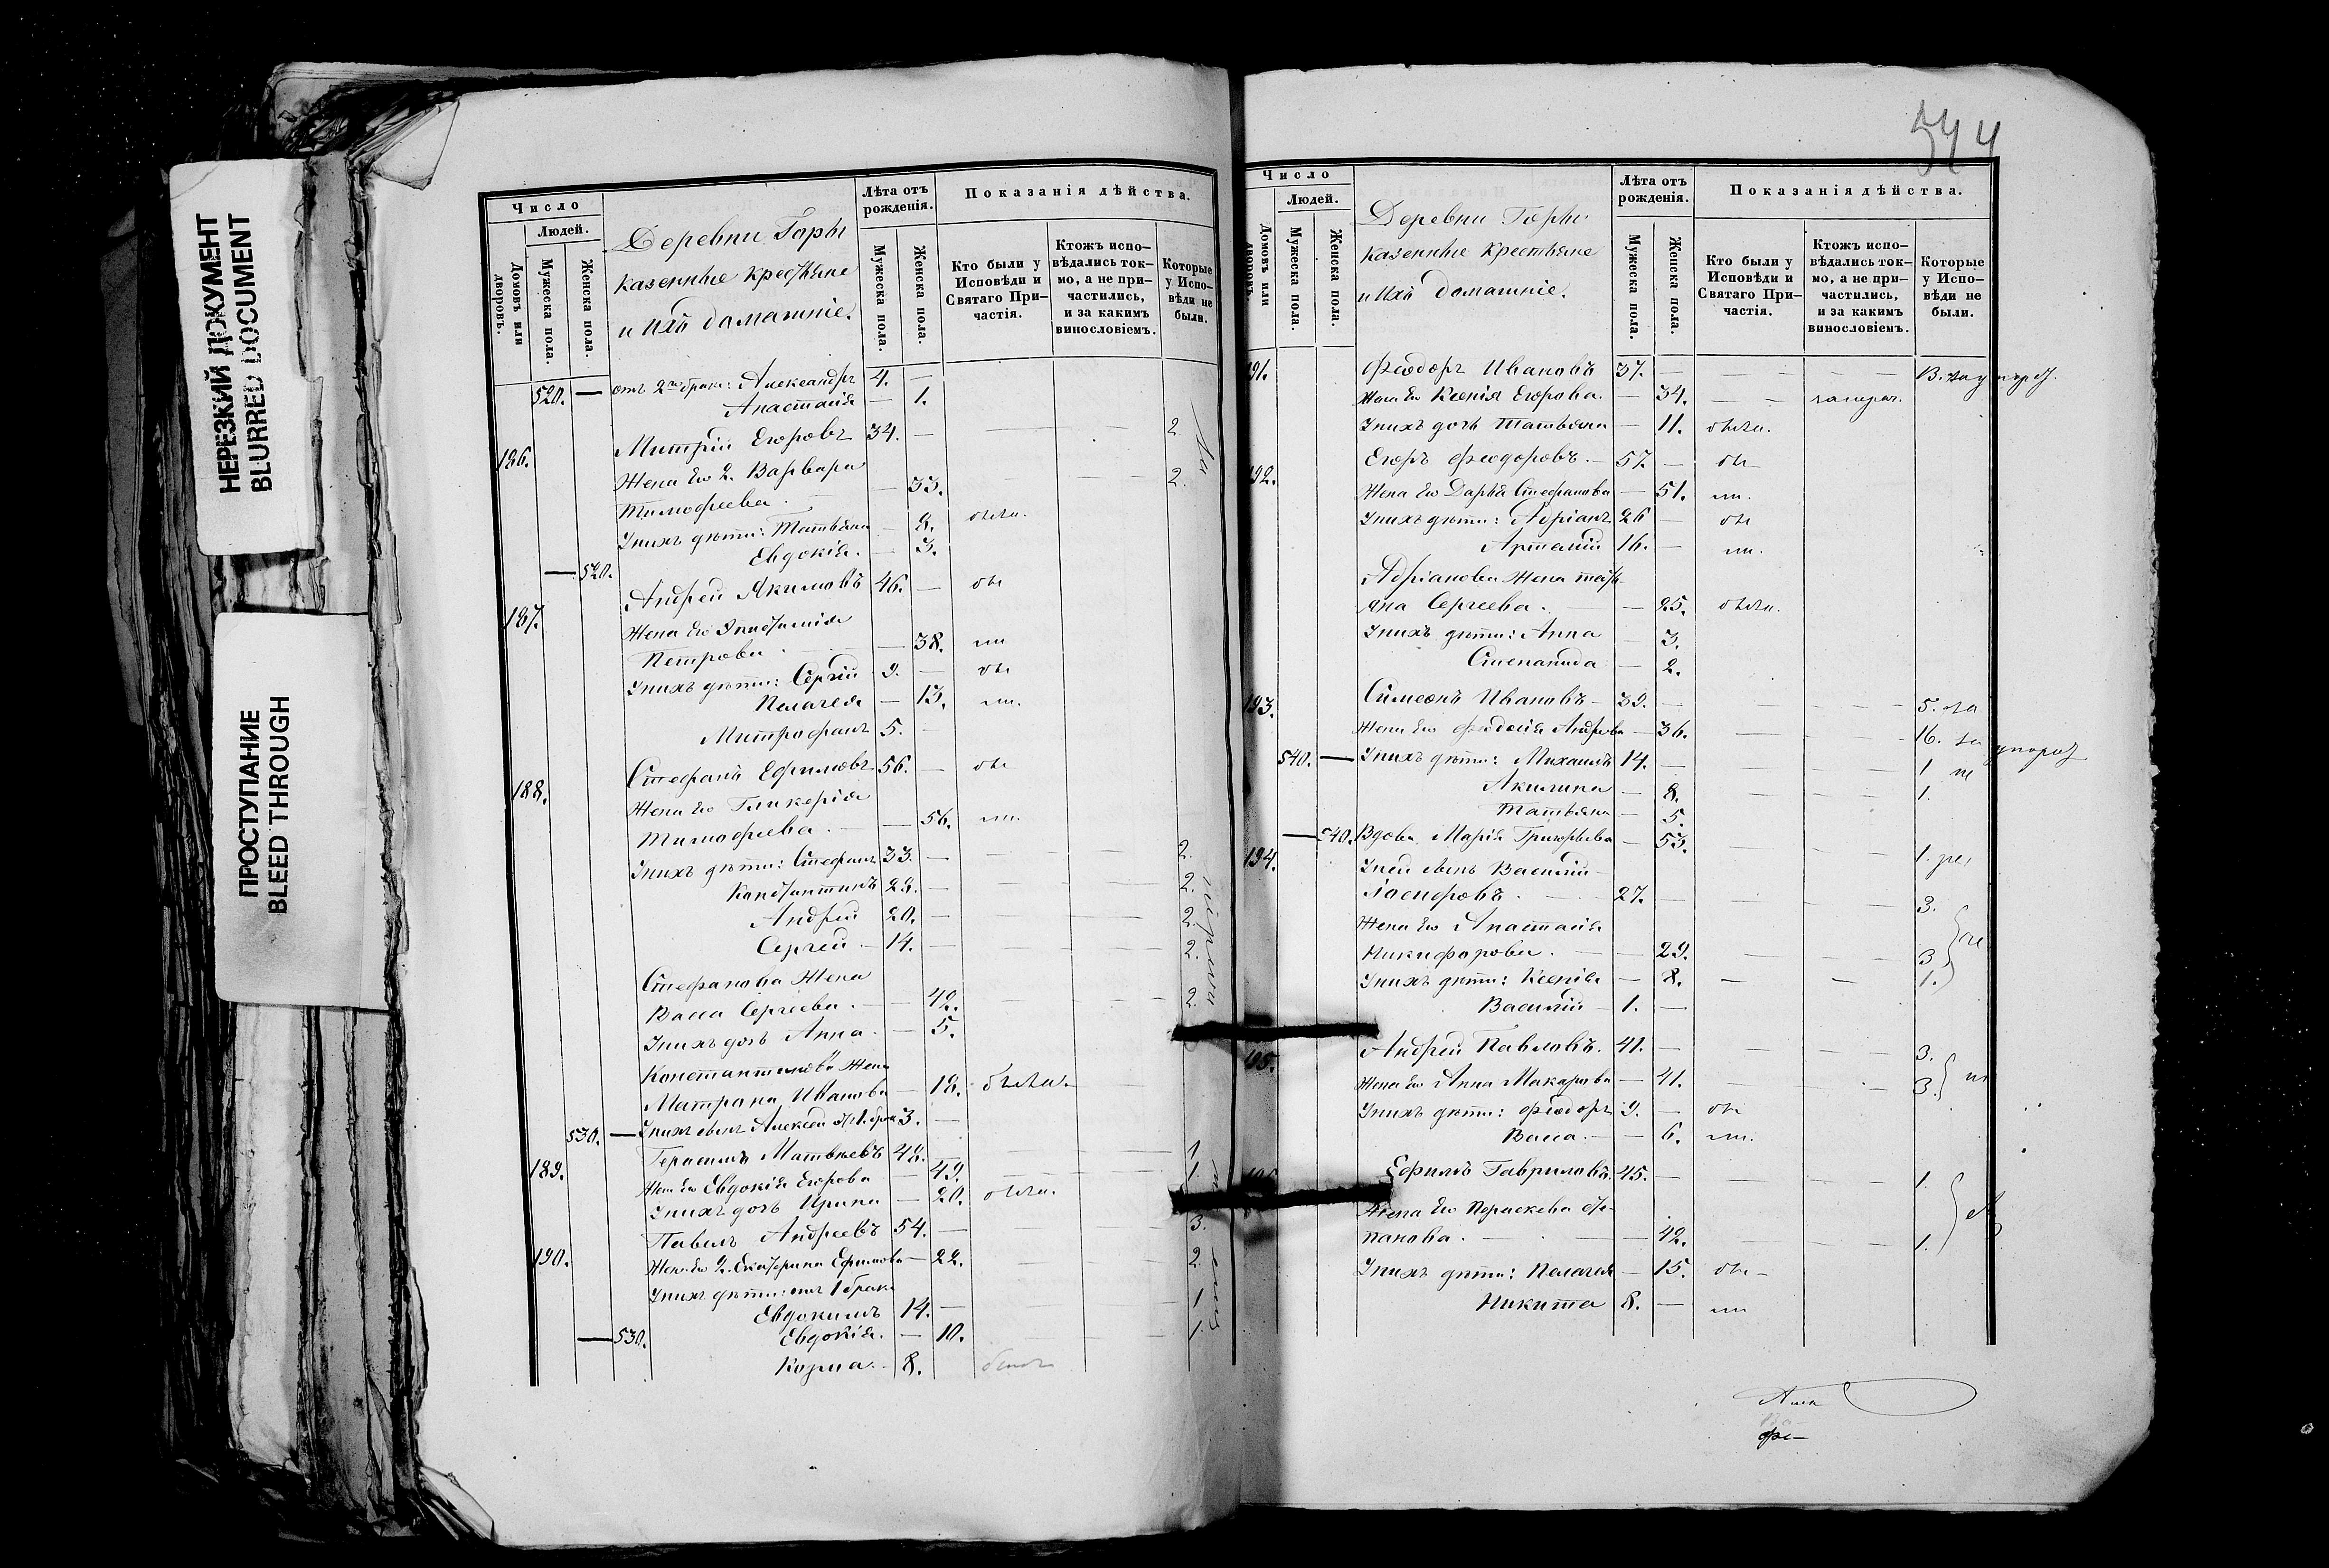 НЕРЕЗКИЙ ДОКУМЕНТ
BLURRED DOCUMENT
ПРОСТУПАНИЕ
BLEED THROUGH
Число
Людей.
Домовъ или дворовъ.
Мужеска пола.
Женска пола.
Деревни Горы
казенные крестьяне
и ихъ домашніе.
Лѣта отъ рожденія.
Мужеска пола.
Женска пола.
Показанія дѣйства.
Кто были у Исповѣди и Святаго Причастія.
Ктожъ исповѣдались токмо, а не причастились, и за какимъ винословіемъ.
Которые у Исповѣди не были.
520. — отъ 2 брака: Александръ 4. —
Анастасія — 1.
186. Митрій Егоровъ 34. — 2
Жена Его 2. Варвара
Тимофеева — 33. 2.
У нихъ дѣти: Татьяна — 9.
Евдокія. — 3.
— 520.
187. Андрей Якимовъ 46. —
Жена Его
Петрова — 38.
У нихъ дѣти: Сергій 9. —
Пелагея — 13.
Митрофанъ 5. —
188. Стефанъ Ефимовъ 56. —
Жена Его Гликерія
Тимофеева. — 56.
У нихъ дѣти: Стефанъ 33. — 2.
Константинъ 23. — 2.
Андрей 20. — 2.
Сергей — 14. — 2.
Стефанова Жена
Васса Сергеева. — 42. 2.
У нихъ дочь Анна. — 5.
Константинова Жена
Матрона Иванова — 18.
530. — У нихъ сынъ Алексей 3. —
189. Герасимъ Матвѣевъ 48. 1
Жена Его Евдокія Егорова — 49. 1.
У нихъ дочь Ирина — 20.
190. Павелъ Андреевъ 54. — 3.
Жена Его 2. Екатерина Ефимова — 22. 2.
У нихъ дѣти: отъ 1 брака
Евдокимъ 14. — 1
— 530. Евдокія. — 10. 1.
Козма. 8.
544
Число
Людей.
Домовъ или дворовъ.
Мужеска пола.
Женска пола.
Деревни Горы
казенные крестьяне
и ихъ домашніе.
Лѣта отъ рожденія.
Мужеска пола.
Женска пола.
Показанія дѣйства.
Кто были у Исповѣди и Святаго Причастія.
Ктожъ исповѣдались токмо, а не причастились, и за какимъ винословіемъ.
Которые у Исповѣди не были.
191. Феодоръ Ивановъ 37. —
Жена Его Ксенія Егорова. — 34.
У нихъ дочь Татьяна — 11.
192. Егоръ Феодоровъ. — 57. —
Жена Его Дарья Стефанова — 51.
У нихъ дѣти: Адріанъ 26 —
Артемій 16. —
Адріанова Жена Тать-
яна Сергеева. — 25.
У нихъ дѣти: Анна — 3.
Степанида — 2.
193. Симеонъ Ивановъ — 39. — 5.
Жена Его — 36. 16.
540. — У нихъ дѣти: Михаилъ 14. — 1
Акилина — 8. 1.
Татьяна — 5.
— 540. Вдова Марія Григорьева — 53. 1.
194. У ней сынъ Василій
Іосифовъ. 27. — 3.
Жена Его Анастасія
Никифорова. — 29. 3
У нихъ дѣти: Ксенія — 8. 1.
Василій — 1. —
195. Андрей Павловъ. 41. — 3.
Жена Его Анна Макарова — 41. 3.
У нихъ дѣти: Феодоръ 9. —
Васса. — 6.
Ефимъ Гавриловъ. 45. — 1.
Жена Его Параскева Сте-
панова. — 42. 1.
У нихъ дѣти: Пелагея — 15.
Никита 8. —